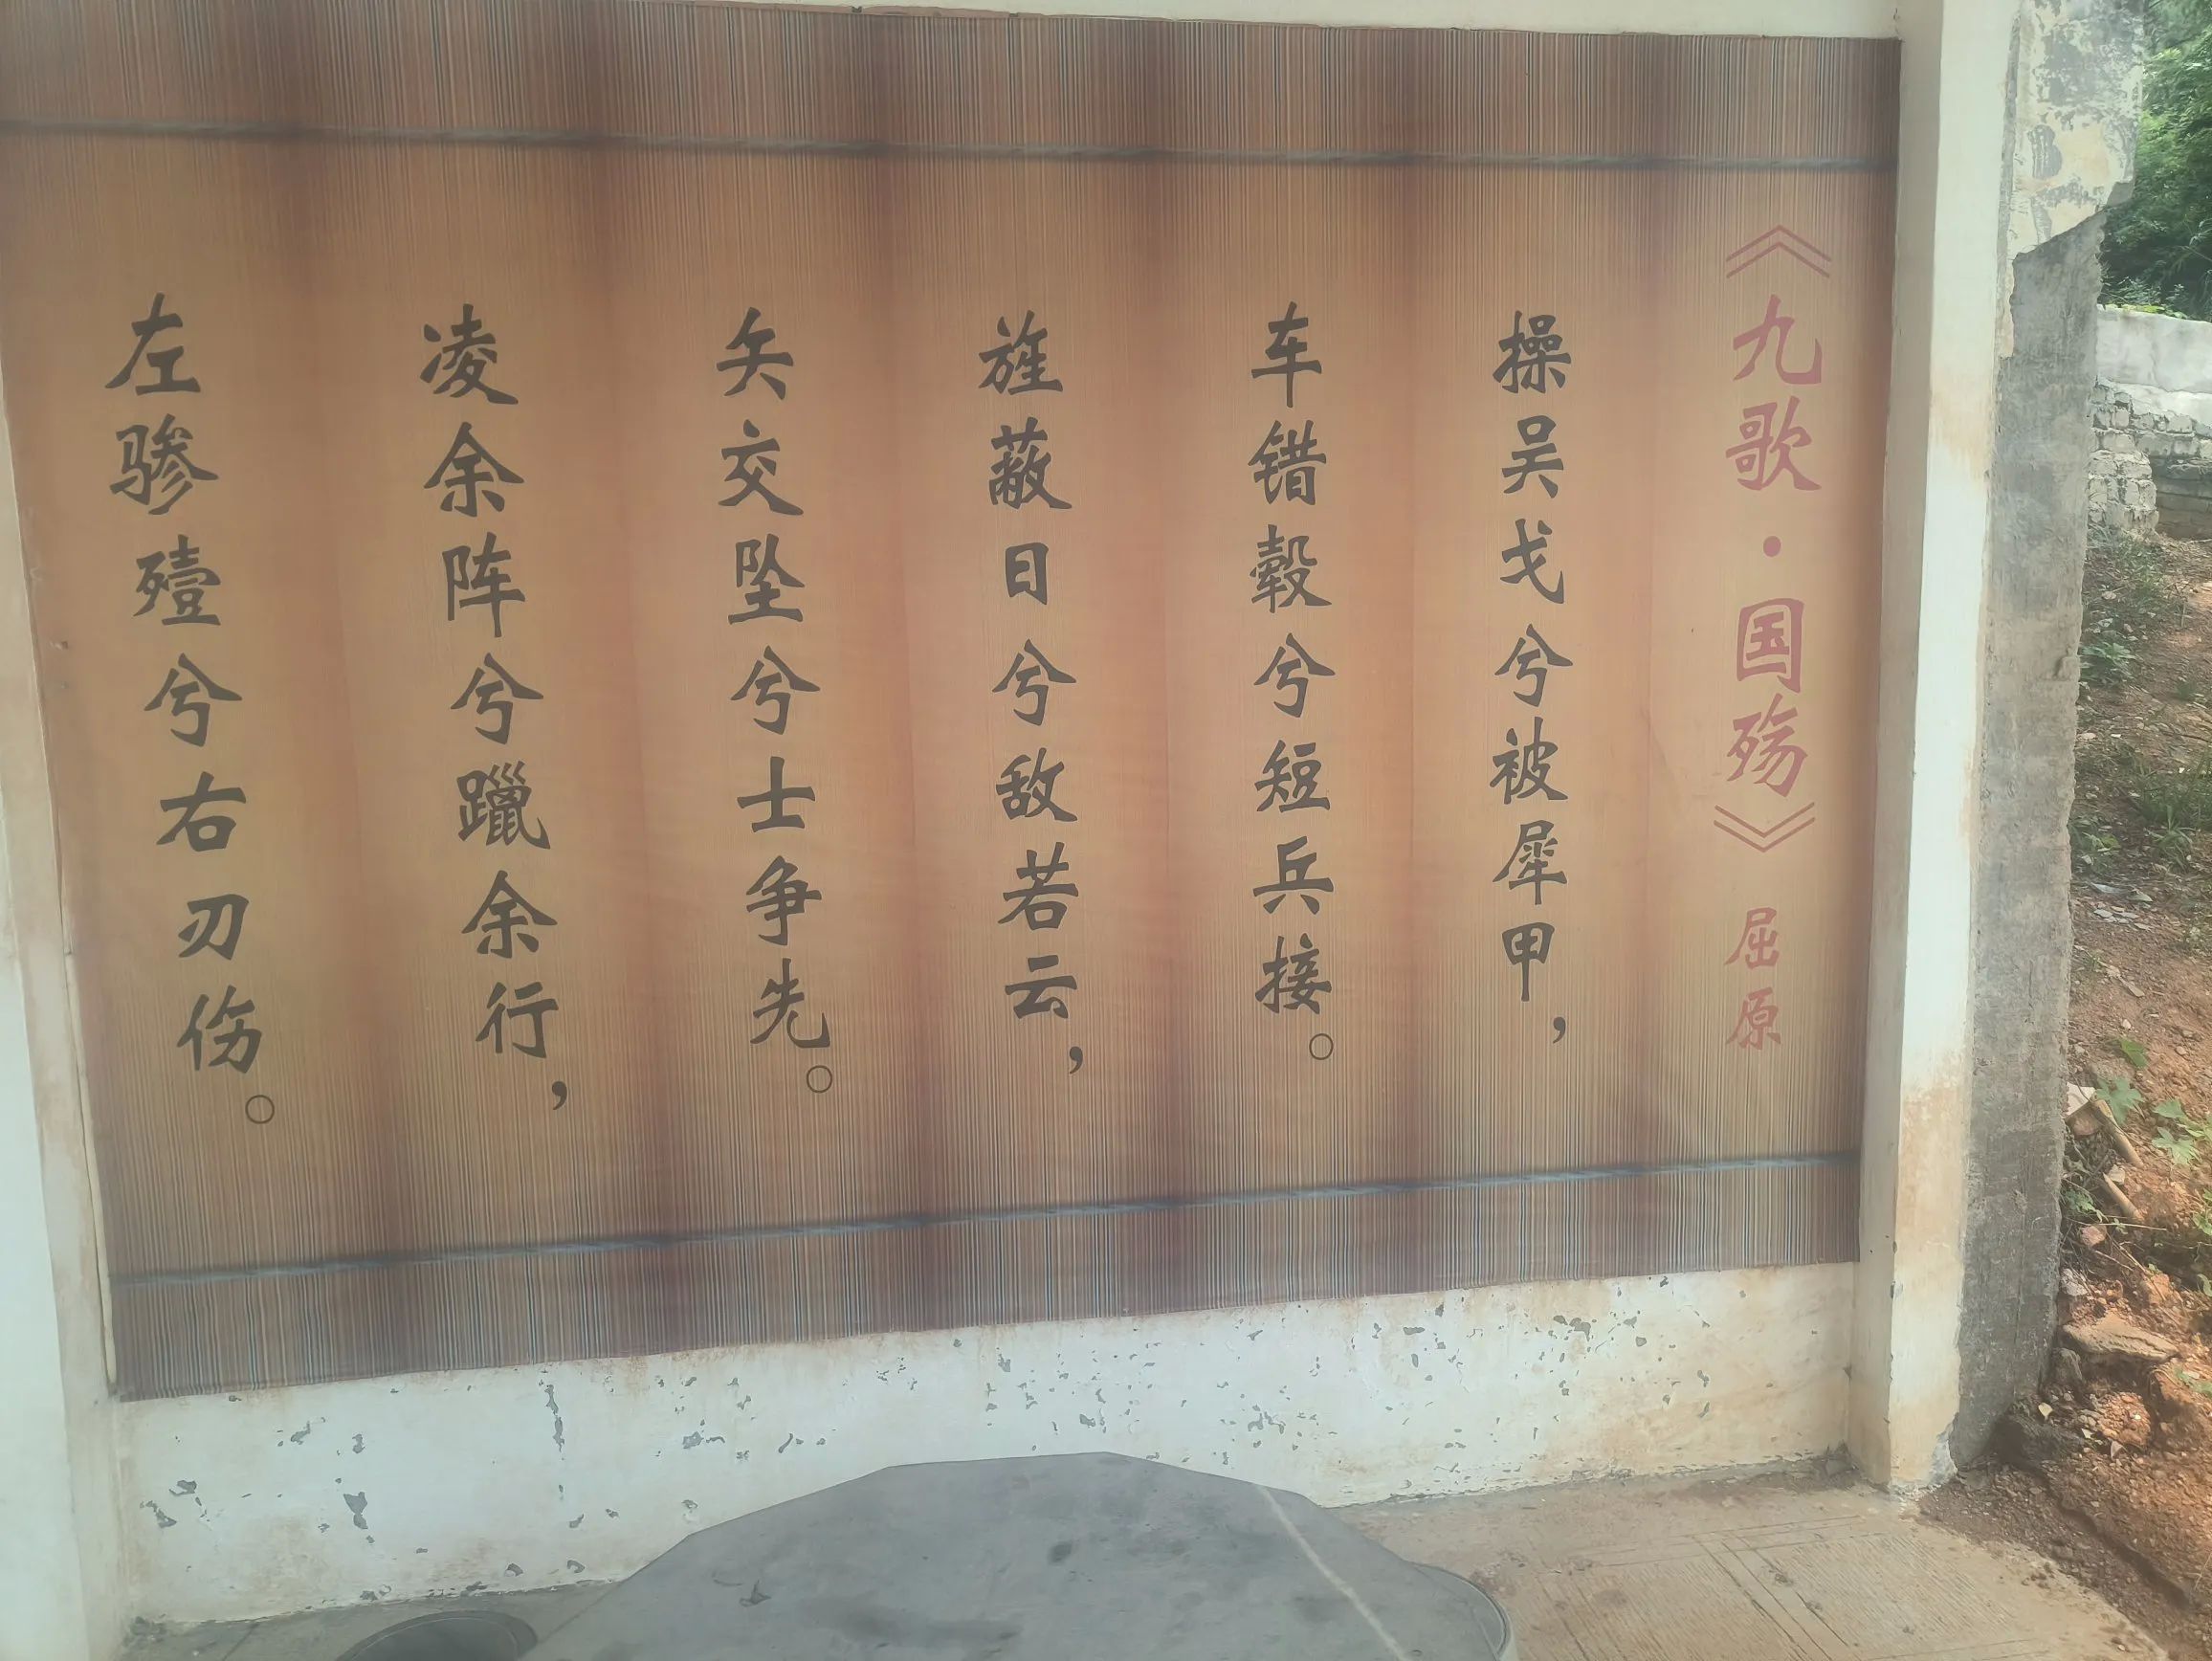 《九歌·国殇》 屈原
操吴戈兮被犀甲，
车错毂兮短兵接。
旌蔽日兮敌若云，
矢交坠兮士争先。
凌余阵兮躐余行，
左骖殪兮右刃伤。